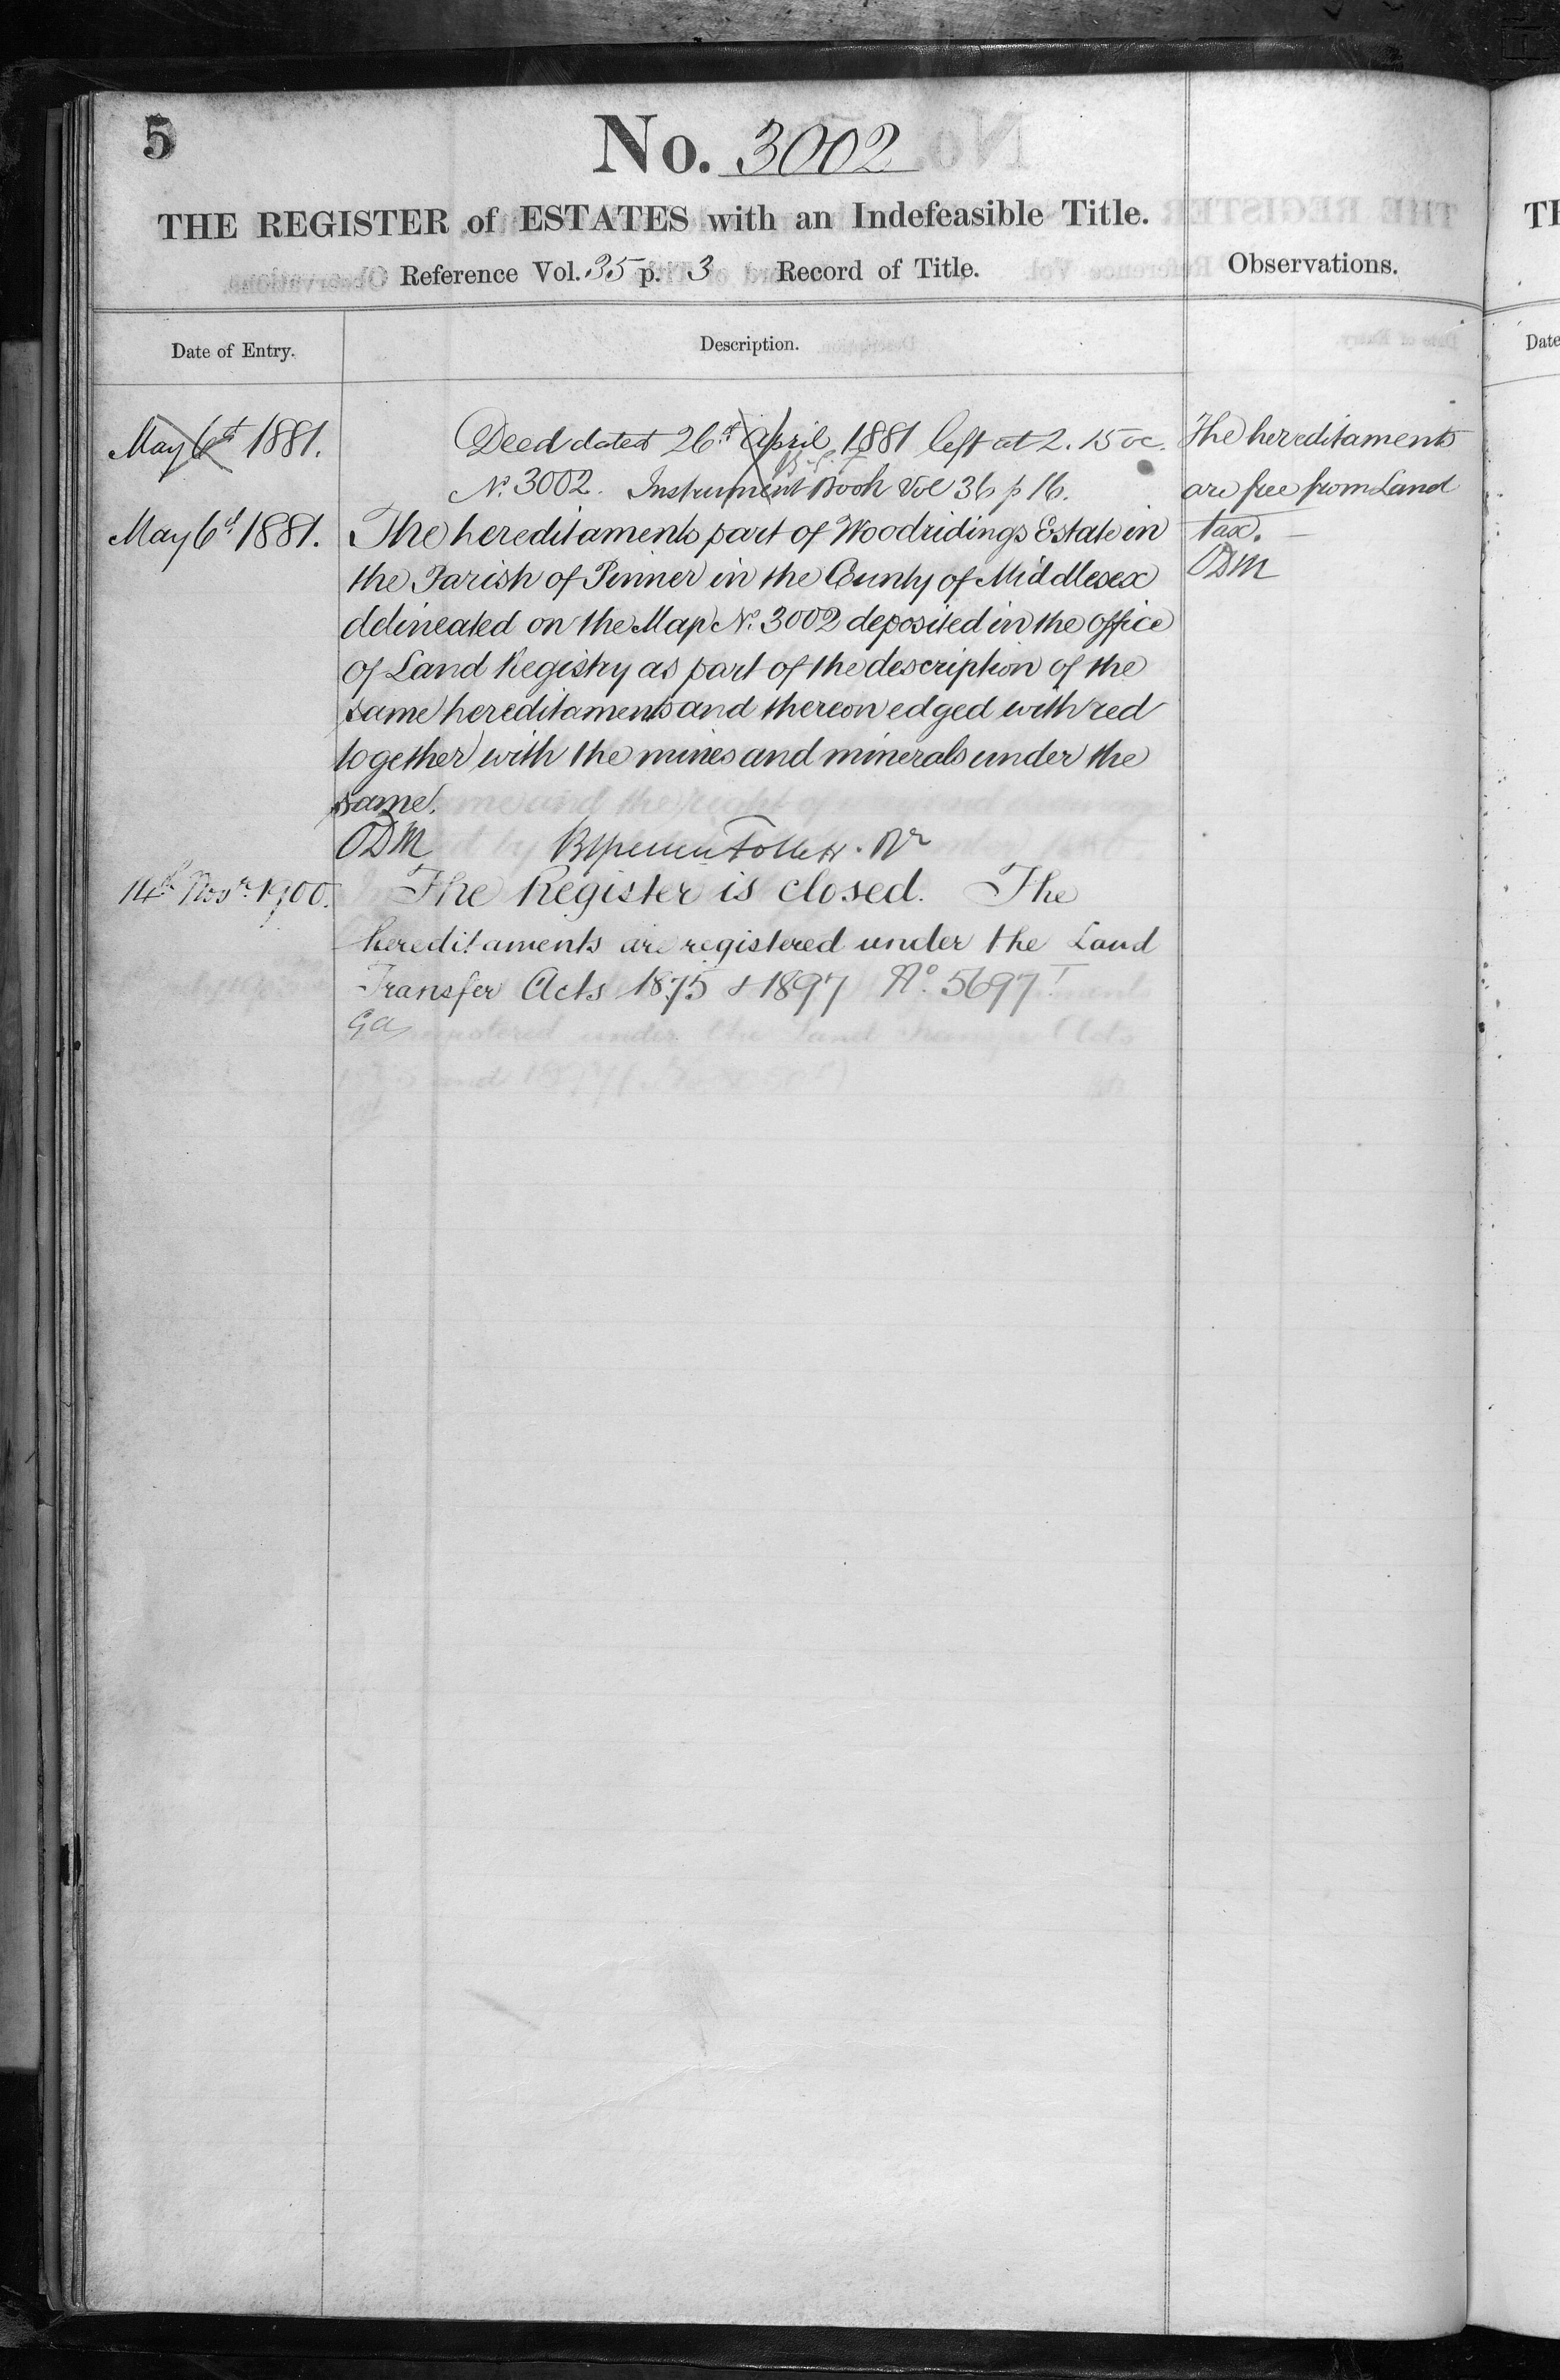 5
No. 3002
THE REGISTER of ESTATES with an Indefeasible Title.
Reference Vol. 35 p. 3 Record of Title.
Observations.
Date of Entry.
Description.
May 6th 1881.
Deed dated 26th April 1881 left at 2.15 oc.
No. 3002. Instrument Book Vol 36 p 16.
The hereditaments
are free from Land
tax.
ODM
May 6th 1881.
The hereditaments part of Woodridings Estate in
the Parish of Pinner in the County of Middlesex
delineated on the Map No. 3002 deposited in the office
of Land Registry as part of the description of the
same hereditaments and thereon edged with red
together with the mines and minerals under the
same.
ODM
14th Novr. 1900.
The Register is closed. The
hereditaments are registered under the Land
Transfer Acts 1875 & 1897 No. 5697
GA
TH
Date